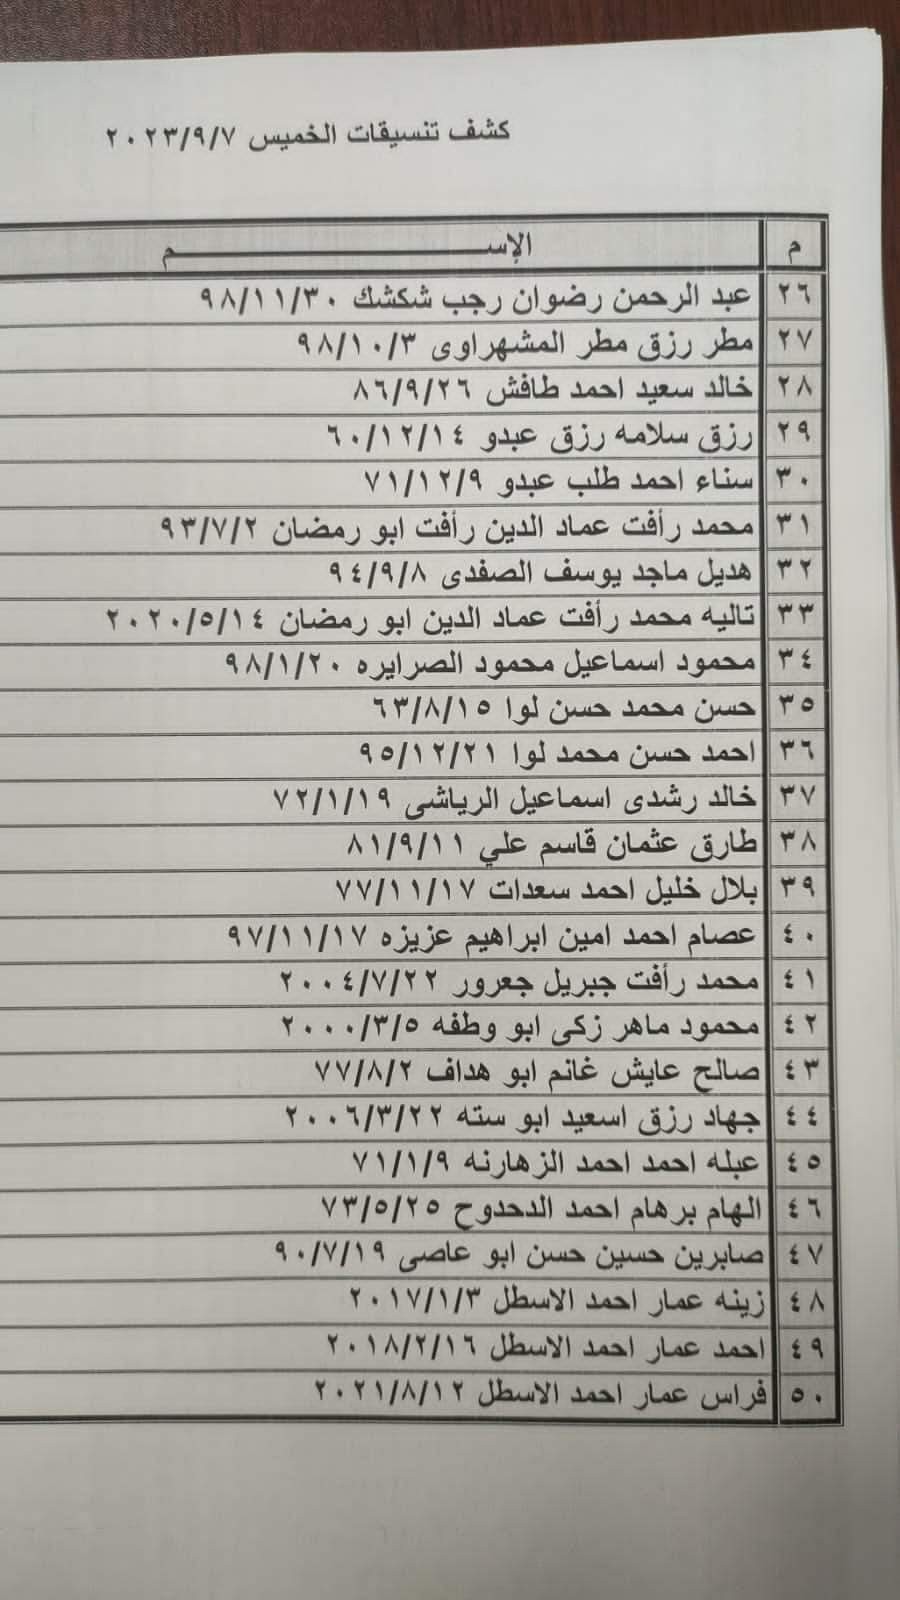 كشف تنسيقات الخميس ٢٠٢٣/٩/٧
م الإســــــــــــــــم
٢٦ عبد الرحمن رضوان رجب شكشك ٩٨/١١/٣٠
٢٧ مطر رزق مطر المشهراوى ٩٨/١٠/٣
٢٨ خالد سعيد احمد طافش ٨٦/٩/٢٦
٢٩ رزق سلامه رزق عبدو ٦٠/١٢/١٤
٣٠ سناء احمد طلب عبدو ٧١/١٢/٩
٣١ محمد رأفت عماد الدين رأفت ابو رمضان ٩٣/٧/٢
٣٢ هديل ماجد يوسف الصفدى ٩٤/٩/٨
٣٣ تاليه محمد رأفت عماد الدين ابو رمضان ٢٠٢٠/٥/١٤
٣٤ محمود اسماعيل محمود الصرايره ٩٨/١/٢٠
٣٥ حسن محمد حسن لوا ٦٣/٨/١٥
٣٦ احمد حسن محمد لوا ٩٥/١٢/٢١
٣٧ خالد رشدى اسماعيل الرياشى ٧٢/١/١٩
٣٨ طارق عثمان قاسم علي ٨١/٩/١١
٣٩ بلال خليل احمد سعدات ٧٧/١١/١٧
٤٠ عصام احمد امين ابراهيم عزيزه ٩٧/١١/١٧
٤١ محمد رأفت جبريل جعرور ٢٠٠٤/٧/٢٢
٤٢ محمود ماهر زكى ابو وطفه ٢٠٠٠/٣/٥
٤٣ صالح عايش غانم ابو هداف ٧٧/٨/٢
٤٤ جهاد رزق اسعيد ابو سته ٢٠٠٦/٣/٢٢
٤٥ عبله احمد احمد الزهارنه ٧١/١/٩
٤٦ الهام برهام احمد الدحدوح ٧٣/٥/٢٥
٤٧ صابرين حسين حسن ابو عاصى ٩٠/٧/١٩
٤٨ زينه عمار احمد الاسطل ٢٠١٧/١/٣
٤٩ احمد عمار احمد الاسطل ٢٠١٨/٢/١٦
٥٠ فراس عمار احمد الاسطل ٢٠٢١/٨/١٢